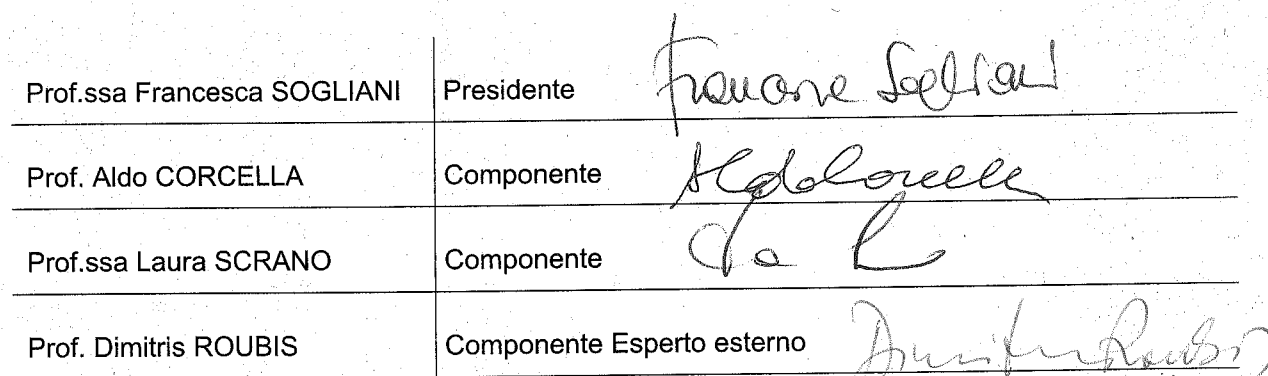 Prof.ssa Francesca SOGLIANI Presidente Francesca Sogliani
Prof. Aldo CORCELLA Componente Aldo Corcella
Prof.ssa Laura SCRANO Componente
Prof. Dimitris ROUBIS Componente Esperto esterno Dimitris Roubis